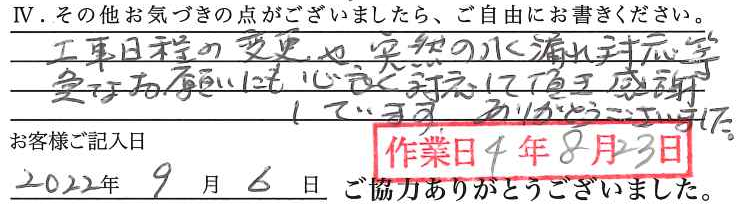 Ⅳ．その他お気づきの点がございましたら、ご自由にお書きください。
工事日程の変更や突然の水漏れ対応等
急なお願いにも心良く対応して頂き感謝
しています。ありがとうございました。
お客様ご記入日
作業日 4年8月23日
2022年 9月 6日 ご協力ありがとうございました。